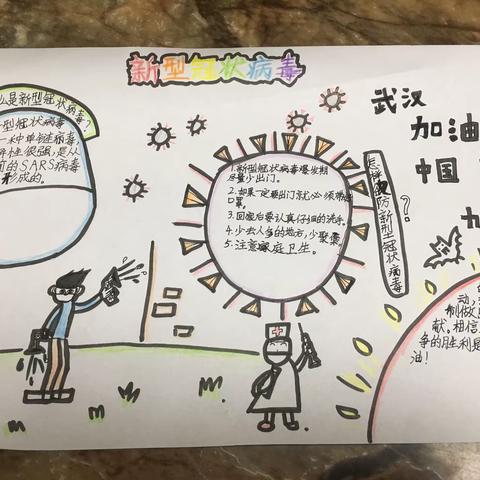 新型冠状病毒
么是新型冠状病毒?
型冠状病毒
一种单链病毒,
性很强,是从
的SARS病毒
形成的。
1.新型冠状病毒爆发期
尽量少出门。
2.如果一定要出门就必须带
口罩。
3.回家后要认真仔细的洗手。
4.少去人多的地方,少聚集。
5.注意家庭卫生。
怎样预防新型冠状病毒?
武汉
加油
中国
动,
制做
献。相信
争的胜利是
油!